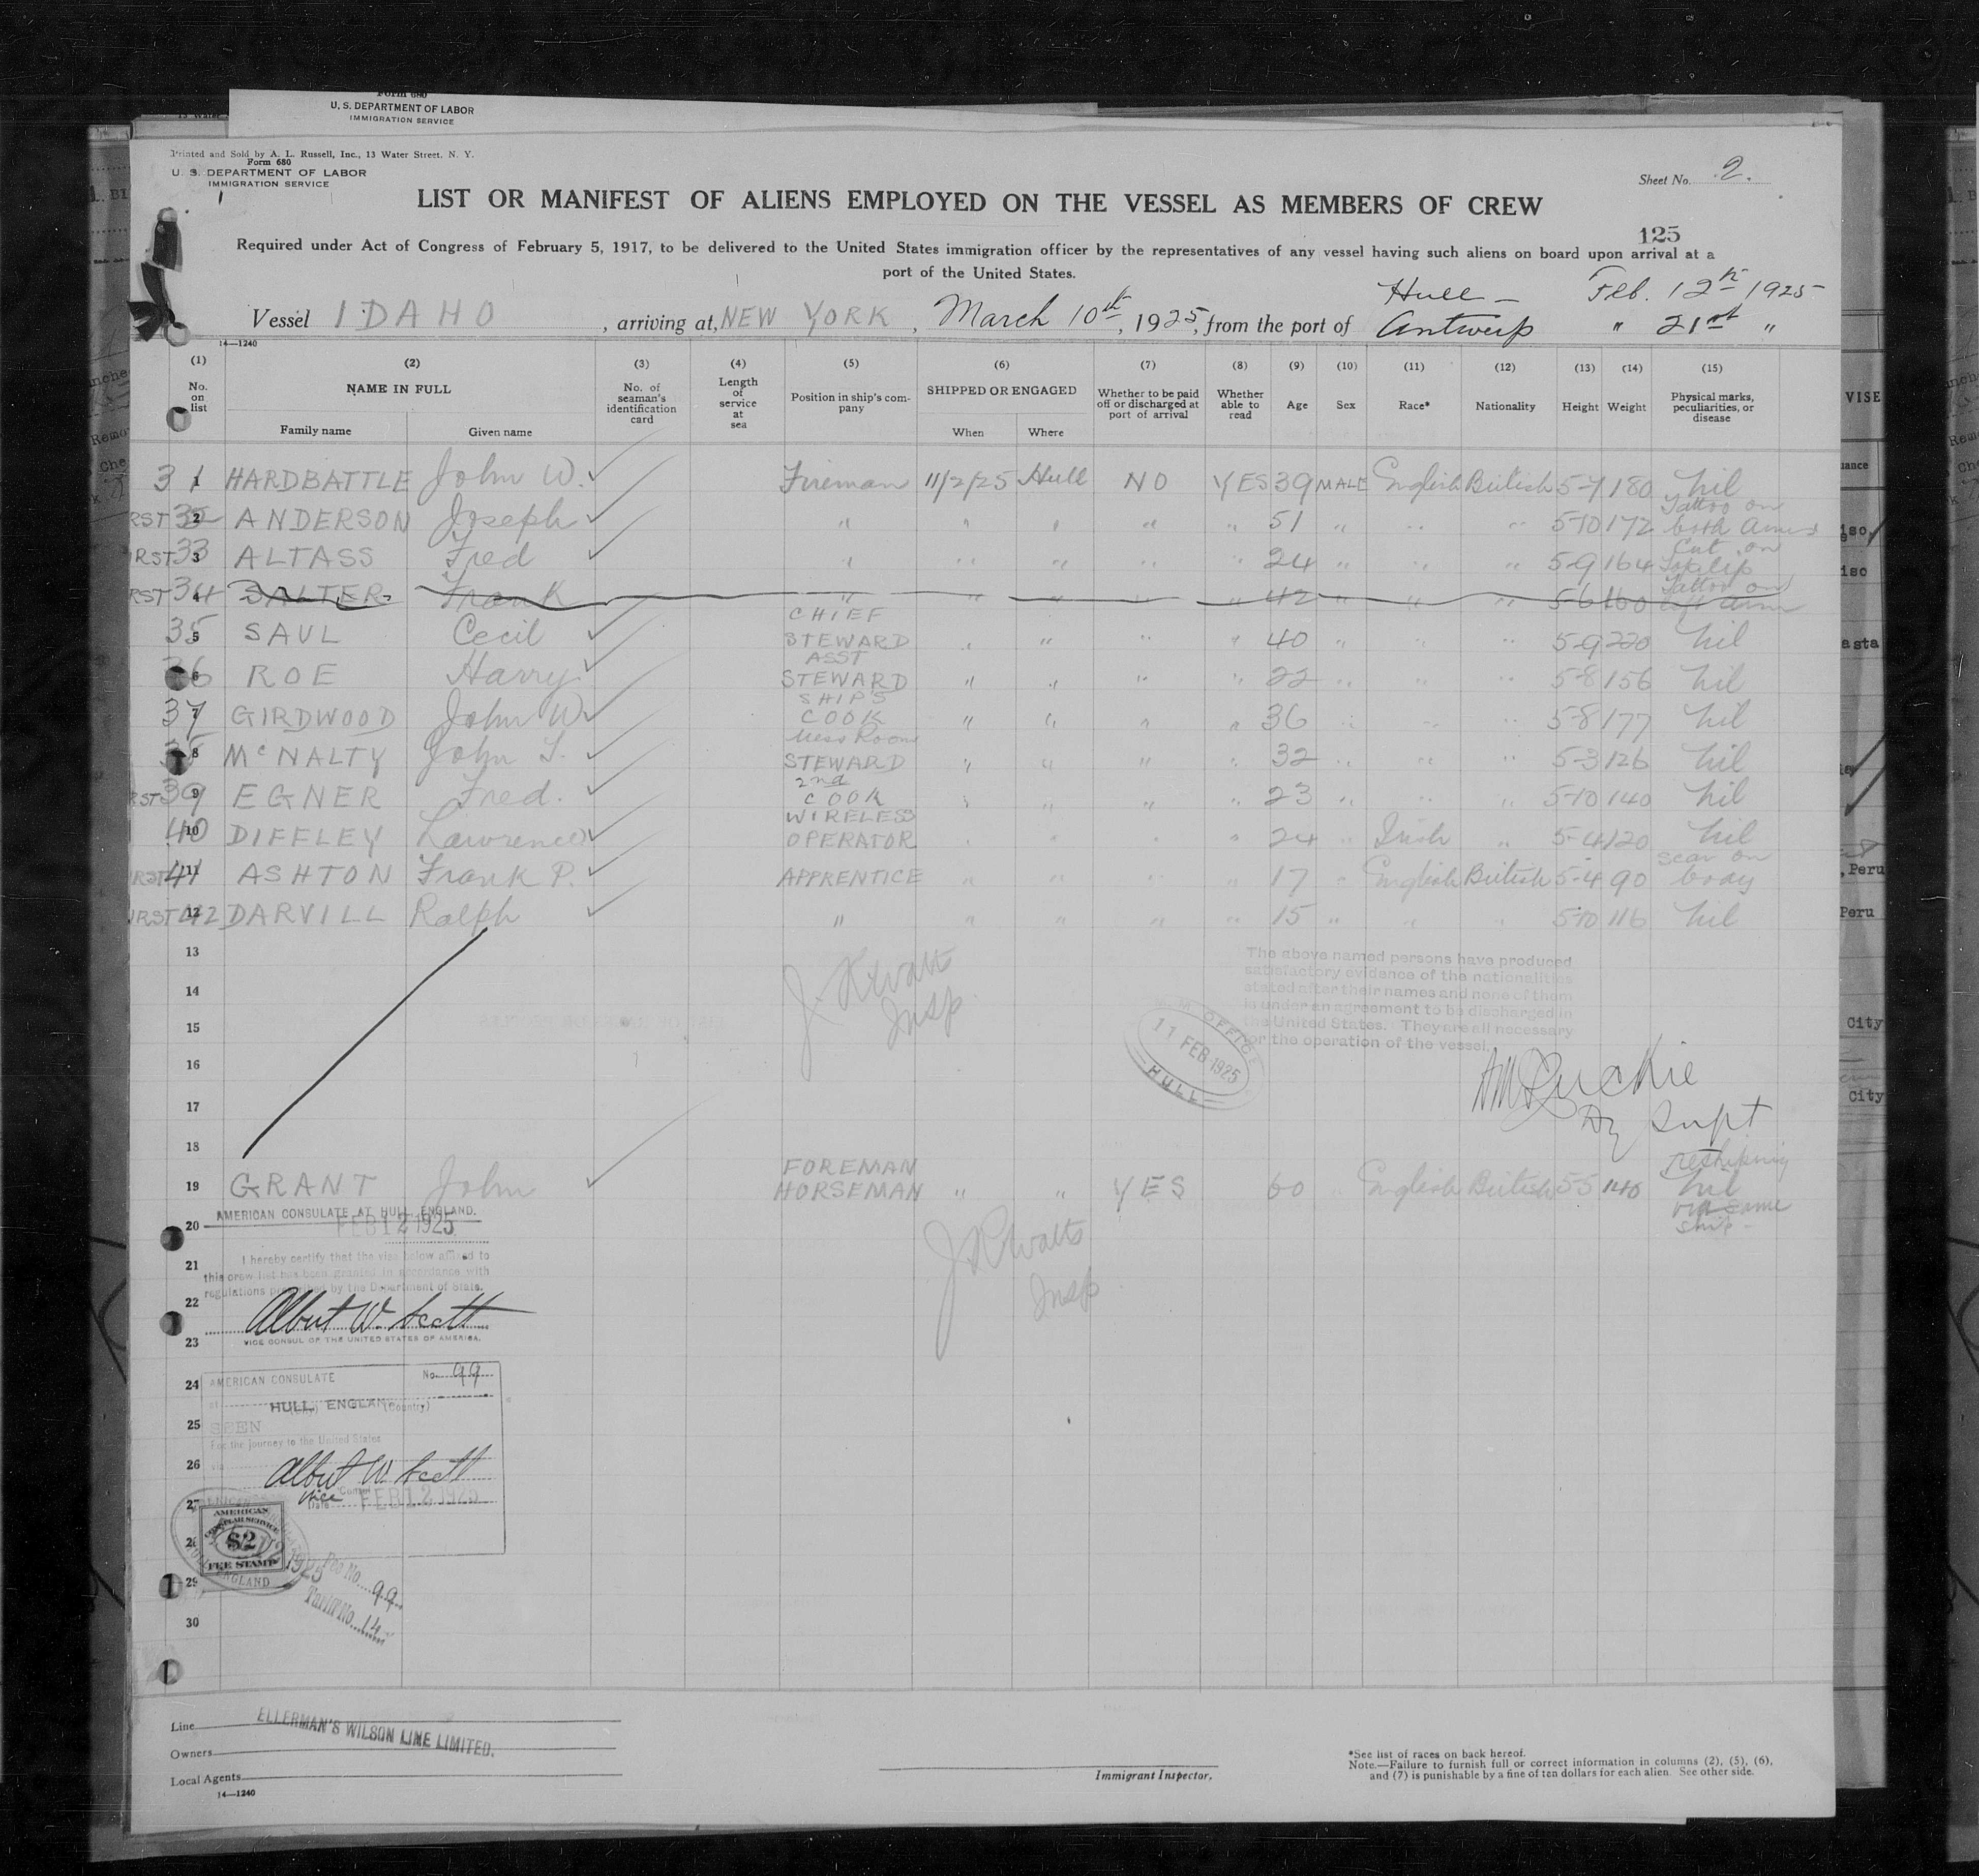 Form 680
U. S. DEPARTMENT OF LABOR
IMMIGRATION SERVICE
Printed and Sold by A. L. Russell, Inc., 13 Water Street, N. Y.
Form 680
U. S. DEPARTMENT OF LABOR
IMMIGRATION SERVICE
Sheet No. 2.
LIST OR MANIFEST OF ALIENS EMPLOYED ON THE VESSEL AS MEMBERS OF CREW
125
Required under Act of Congress of February 5, 1917, to be delivered to the United States immigration officer by the representatives of any vessel having such aliens on board upon arrival at a
port of the United States.
Hull - Feb. 12th 1925
Vessel IDAHO, arriving at NEW YORK, March 10th, 1925, from the port of Antwerp " 21st "
14—1240
(1) (2) (3) (4) (5) (6) (7) (8) (9) (10) (11) (12) (13) (14) (15)
No. on list NAME IN FULL No. of seaman's identification card Length of service at sea Position in ship's company SHIPPED OR ENGAGED Whether to be paid off or discharged at port of arrival Whether able to read Age Sex Race* Nationality Height Weight Physical marks, peculiarities, or disease
Family name Given name When Where
31 1 HARDBATTLE John W. Fireman 11/2/25 Hull NO YES 39 MALE English British 5-7 180 Nil
RST 32 2 ANDERSON Joseph " " " " " 51 " " " 5-10 172 Tattoo on both arms
RST 33 3 ALTASS Fred " " " " " 24 " " " 5-9 164 Cut on top lip
RST 34 4 SALTER Frank " " " " " 42 " " " 5-6 160 Tattoo on left arm
35 5 SAUL Cecil CHIEF STEWARD " " " " 40 " " " 5-9 220 Nil
36 6 ROE Harry ASST STEWARD " " " " 22 " " " 5-8 156 Nil
37 7 GIRDWOOD John W. SHIP'S COOK " " " " 36 " " " 5-8 177 Nil
8 McNALTY John Mess Room STEWARD " " " " 32 " " " 5-3 126 Nil
RST 39 9 EGNER Fred. 2nd COOK " " " " 23 " " " 5-10 140 Nil
40 10 DIFFLEY Lawrence WIRELESS OPERATOR " " " " 24 " Irish " 5-4 120 Nil
RST 41 11 ASHTON Frank P. APPRENTICE " " " " 17 " English British 5-4 90 Scar on body
IRST 42 12 DARVILL Ralph " " " " " 15 " " " 5-10 116 Nil
13
14
15
16
17
18
J. R. Watts
Insp
The above named persons have produced
satisfactory evidence of the nationalities
stated after their names and none of them
is under an agreement to be discharged in
the United States. They are all necessary
for the operation of the vessel.
M. M. OFFICE
11 FEB 1925
HULL
Dy Supt
19 GRANT John FOREMAN HORSEMAN " " YES 60 " English British 5-5 140 reshipping Nil via same ship
AMERICAN CONSULATE AT HULL, ENGLAND.
FEB 12 1925
20
I hereby certify that the visa below affixed to
this crew list has been granted in accordance with
regulations prescribed by the Department of State.
21
22
Albert W. Scott
VICE CONSUL OF THE UNITED STATES OF AMERICA.
23
J R Watts
Insp
24
AMERICAN CONSULATE No. 99
at HULL, ENGLAND (Country)
25
SEEN
For the journey to the United States
26
Albert W. Scott
Vice Consul
27
Date FEB 12 1925
AMERICAN
CONSULAR SERVICE
$2
FEE STAMP
ENGLAND
1925
28
29
Fee No. 99
Tariff No. 14
30
Line ELLERMAN'S WILSON LINE LIMITED.
Owners
Local Agents
14—1240
Immigrant Inspector.
*See list of races on back hereof.
Note.—Failure to furnish full or correct information in columns (2), (5), (6),
and (7) is punishable by a fine of ten dollars for each alien. See other side.
VISE
Peru
Peru
City
City